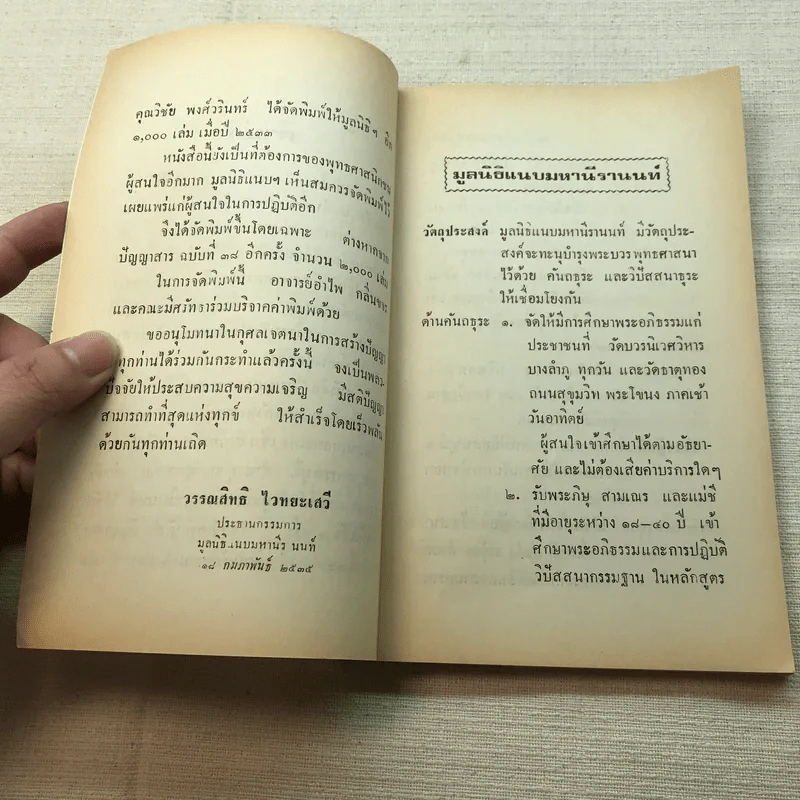 คุณวิชัย พงศ์วรินทร์ ได้จัดพิมพ์ให้มูลนิธิฯ อีก
๑,๐๐๐ เล่ม เมื่อปี ๒๕๓๓
หนังสือนี้ยังเป็นที่ต้องการของพุทธศาสนิกชน
ผู้สนใจอีกมาก มูลนิธิแนบฯ เห็นสมควรจัดพิมพ์ไว้
เผยแพร่แก่ผู้สนใจในการปฏิบัติอีก
จึงได้จัดพิมพ์ขึ้นโดยเฉพาะ ต่างหากจาก
ปัญญาสาร ฉบับที่ ๓๘ อีกครั้ง จำนวน ๒,๐๐๐ เล่ม
ในการจัดพิมพ์นี้ อาจารย์อำไพ กลิ่นขจร
และคณะมีศรัทธาร่วมบริจาคค่าพิมพ์ด้วย
ขออนุโมทนาในกุศลเจตนาในการสร้างปัญญา
ทุกท่านได้ร่วมกันกระทำแล้วครั้งนี้ จงเป็นพลว-
ปัจจัยให้ประสบความสุขความเจริญ มีสติปัญญา
สามารถทำที่สุดแห่งทุกข์ ให้สำเร็จโดยเร็วพลัน
ด้วยกันทุกท่านเถิด
วรรณสิทธิ ไวทยะเสวี
ประธานกรรมการ
มูลนิธิแนบมหานีรนนท์
๑๘ กุมภาพันธ์ ๒๕๓๕
มูลนิธิแนบมหานีรานนท์
วัตถุประสงค์ มูลนิธิแนบมหานีรานนท์ มีวัตถุประ-
สงค์จะทะนุบำรุงพระบวรพุทธศาสนา
ไว้ด้วย คันถธุระ และวิปัสสนาธุระ
ให้เชื่อมโยงกัน
ด้านคันถธุระ ๑. จัดให้มีการศึกษาพระอภิธรรมแก่
ประชาชนที่ วัดบวรนิเวศวิหาร
บางลำภู ทุกวัน และวัดธาตุทอง
ถนนสุขุมวิท พระโขนง ภาคเช้า
วันอาทิตย์
ผู้สนใจเข้าศึกษาได้ตามอัธยา-
ศัย และไม่ต้องเสียค่าบริการใดๆ
๒. รับพระภิษุ สามเณร และแม่ชี
ที่มีอายุระหว่าง ๑๘—๔๐ ปี เข้า
ศึกษาพระอภิธรรมและการปฏิบัติ
วิปัสสนากรรมฐาน ในหลักสูตร